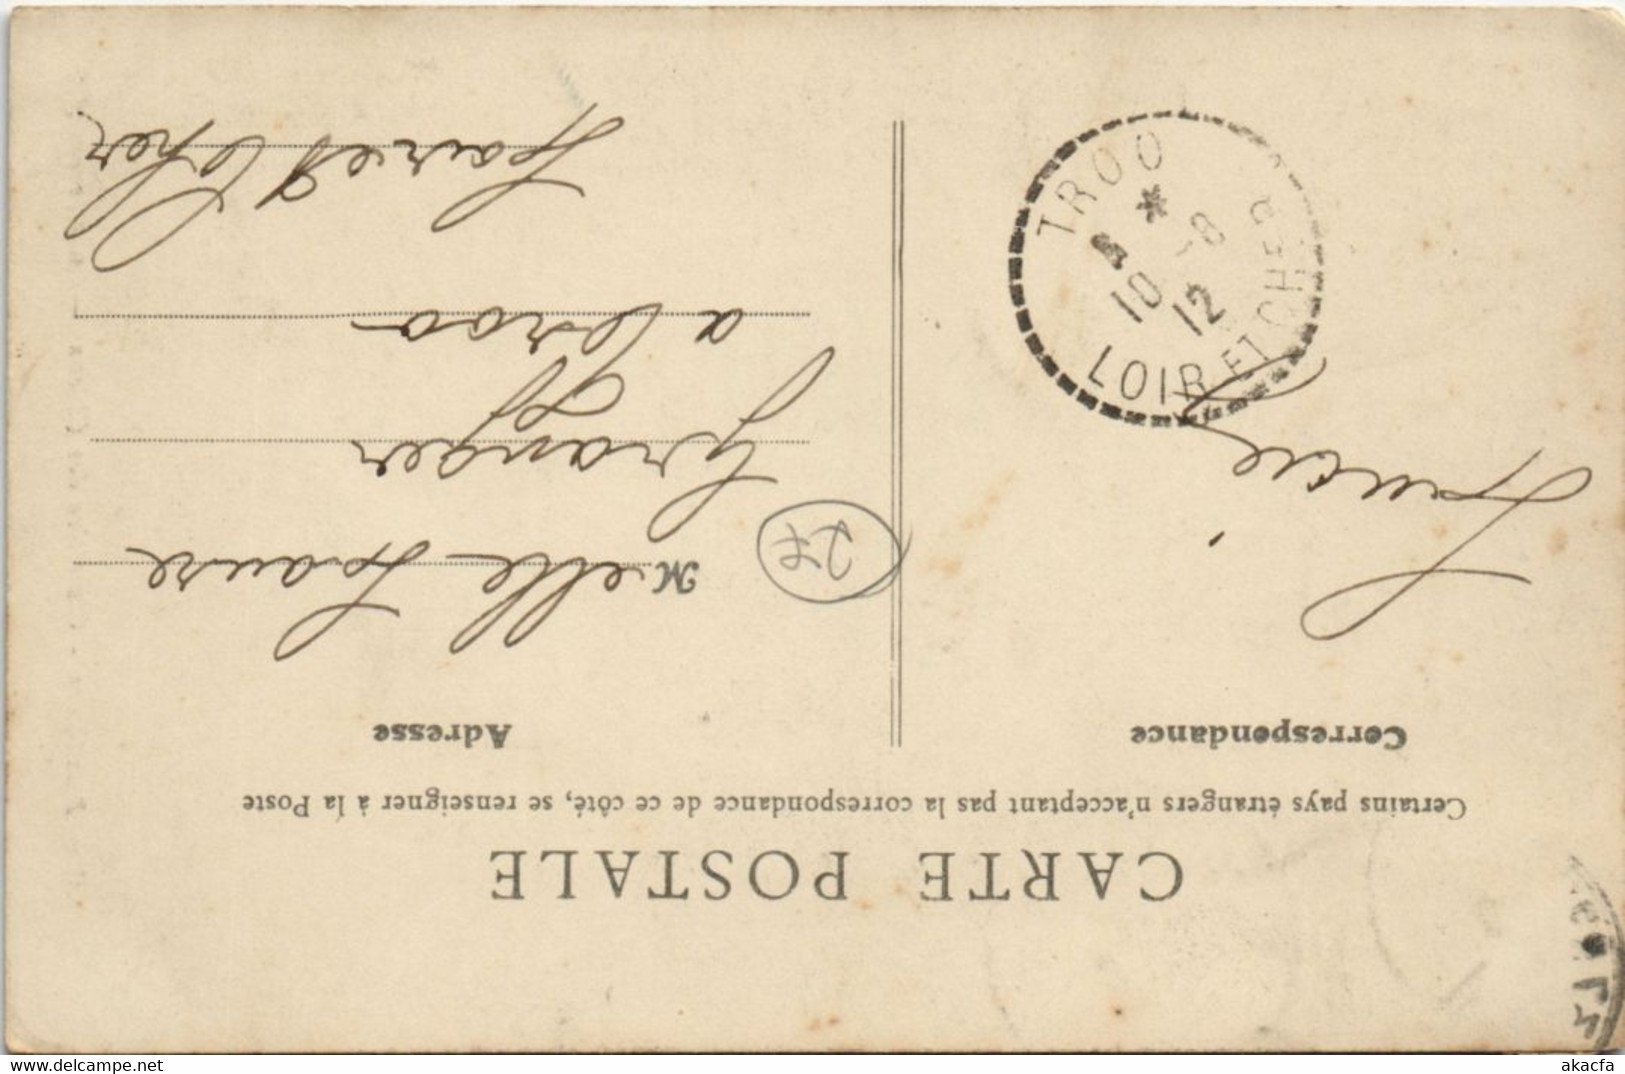 CARTE POSTALE
Certains pays étrangers n'acceptant pas la correspondance de ce côté, se renseigner à la Poste
Correspondance
Adresse
Lucie
Melle Laure
Granger
a Troo
Loir et Cher
2F
TROO
*
10 -8
12
LOIR ET CHER
akacfa